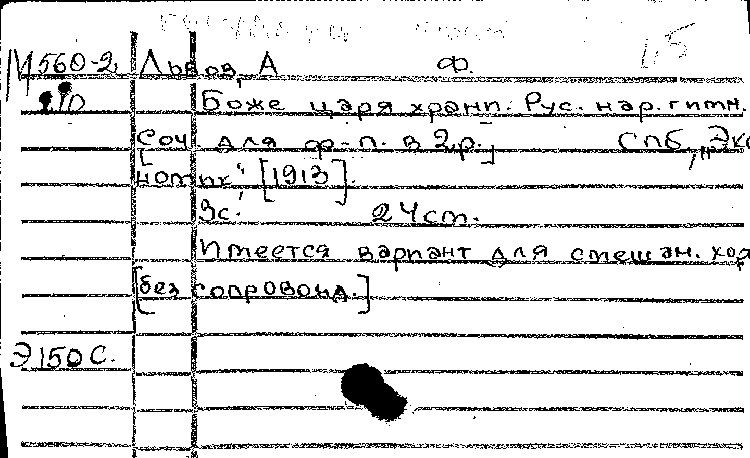 1,5
М560-2 Львов, А ф.
Боже царя храни. Рус. нар. гимн.
[Соч. для ф-п. в 2 р.] Спб, „Эко
номик" [1913].
3с. 24cm.
Имеется вариант для смешан. хор
[без сопровожд.]
Э150С.